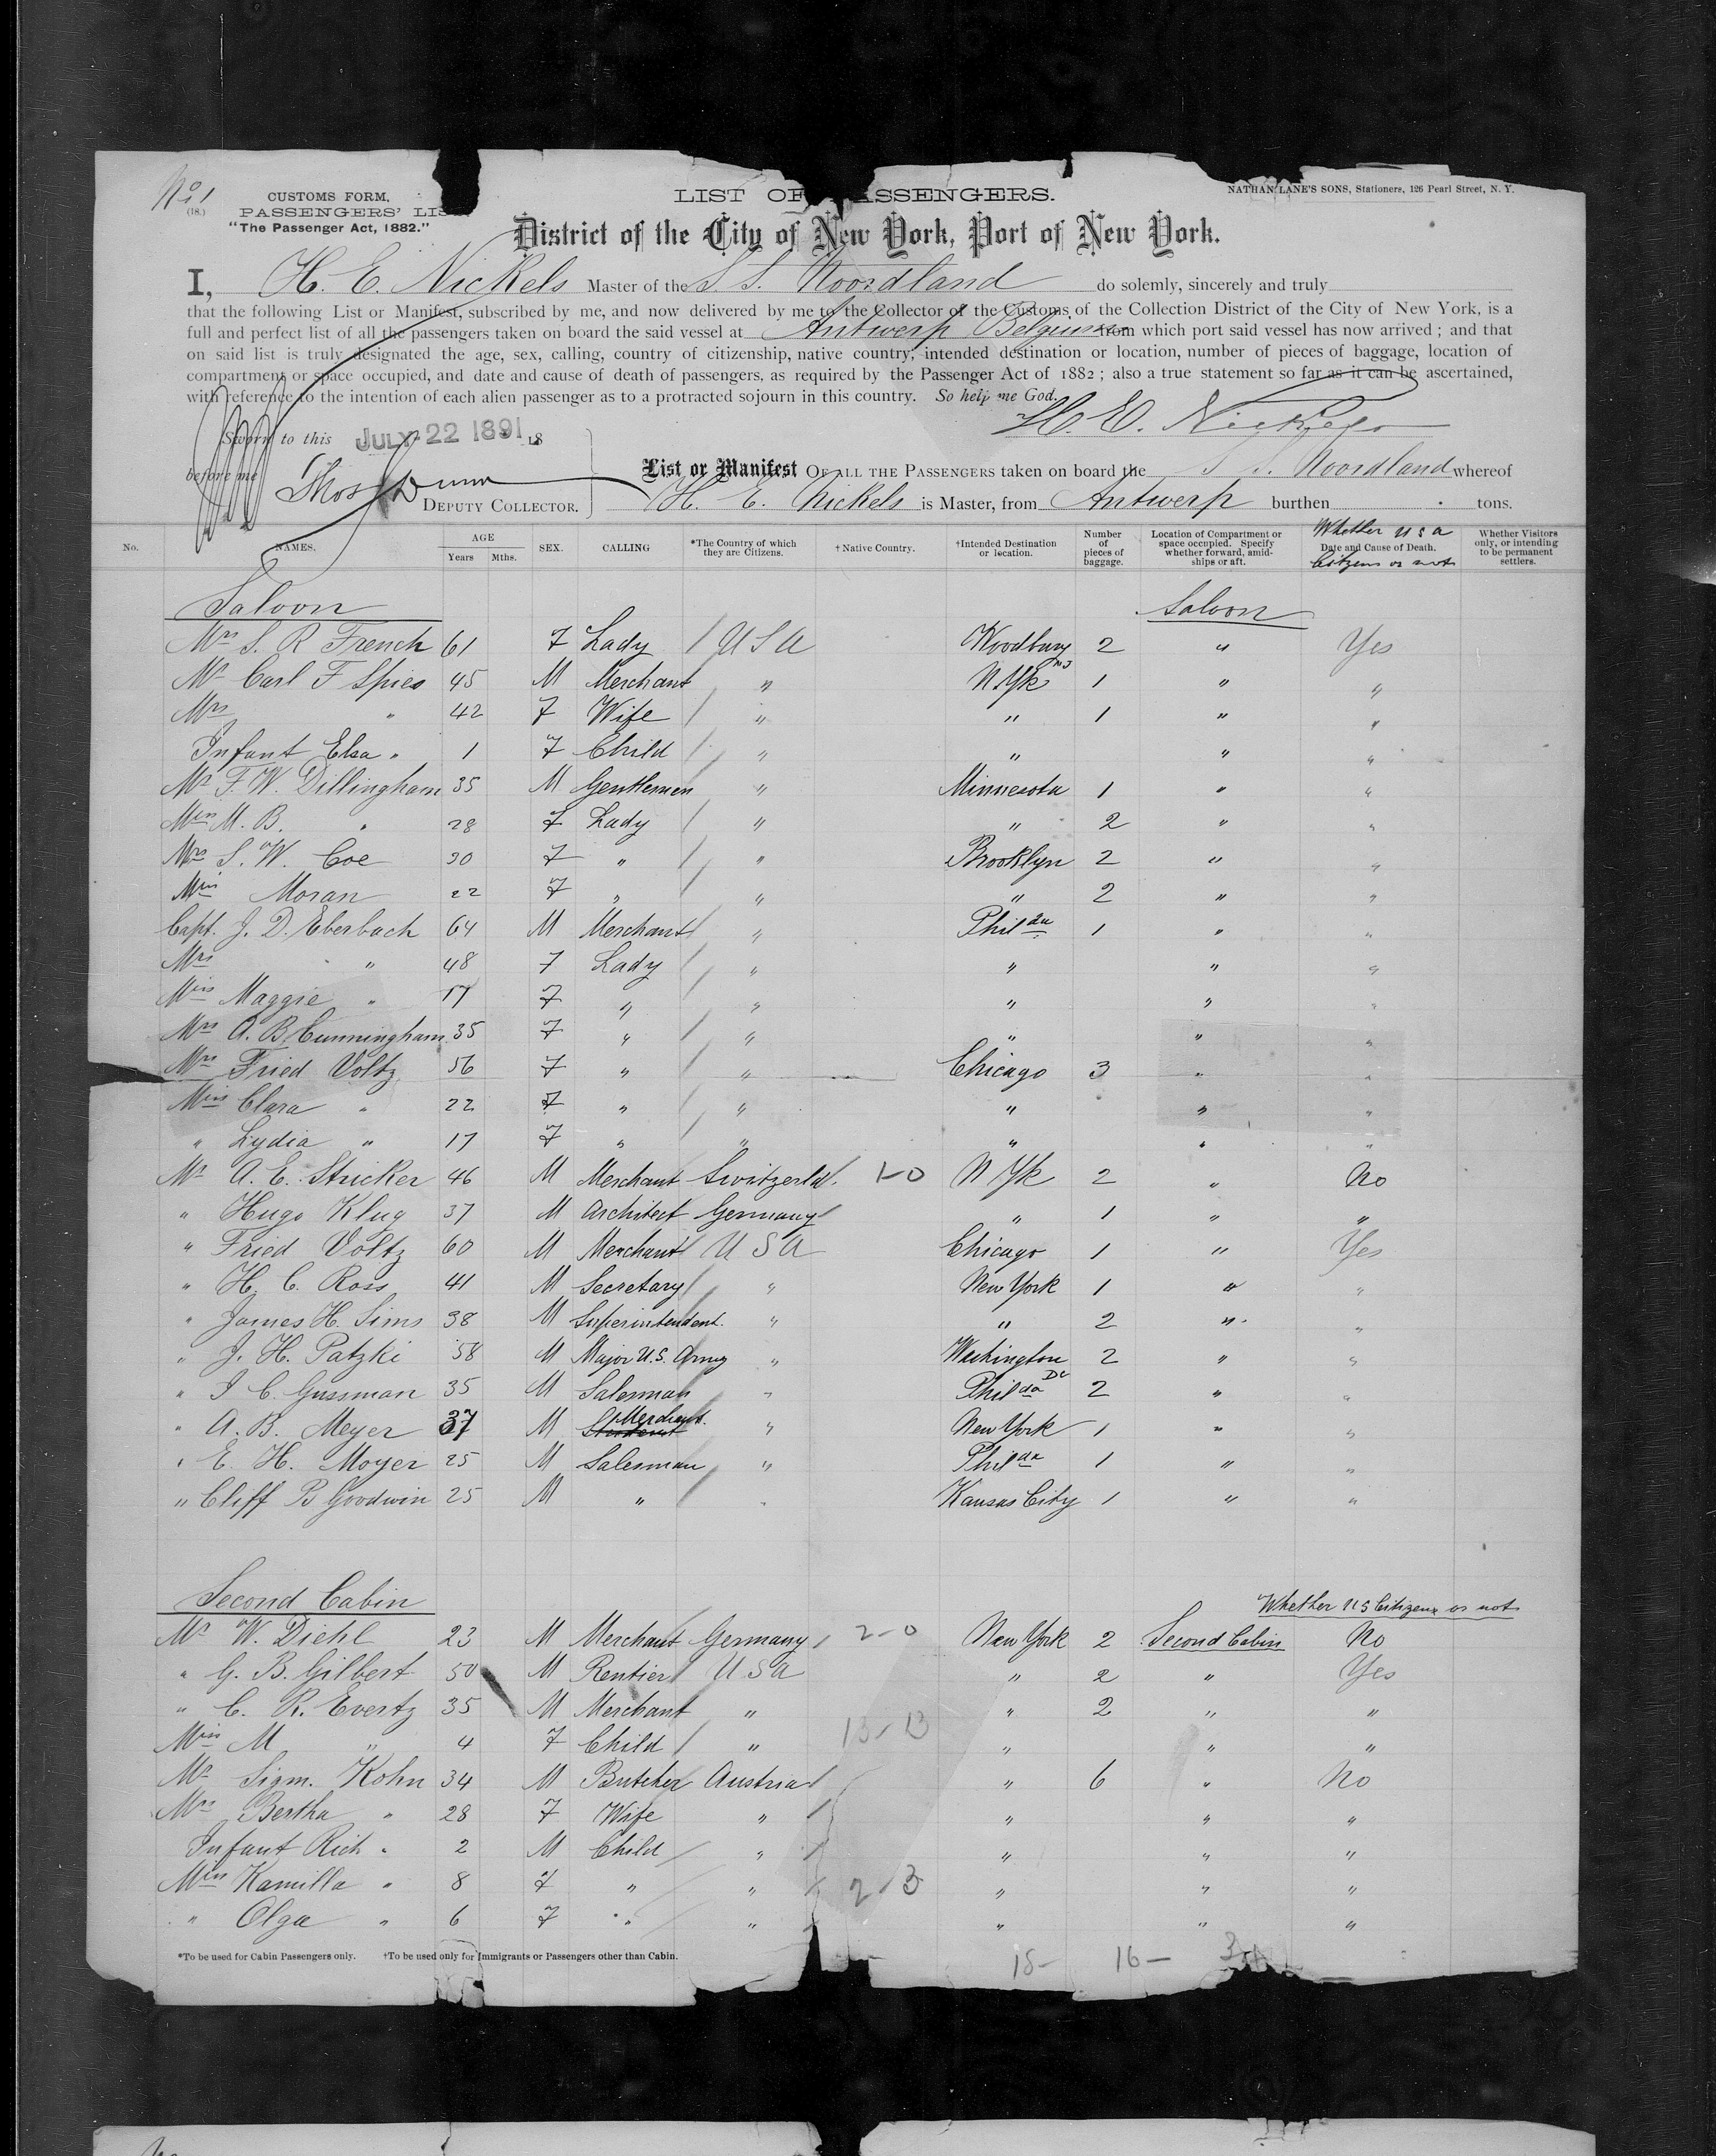 No 1
(18.)
CUSTOMS FORM,
PASSENGERS' LIS
"The Passenger Act, 1882."
LIST OF PASSENGERS.
NATHAN LANE'S SONS, Stationers, 126 Pearl Street, N. Y.
District of the City of New York, Port of New York.
I, H. E. Nickels Master of the S. S. Noordland do solemnly, sincerely and truly
that the following List or Manifest, subscribed by me, and now delivered by me to the Collector of the Customs of the Collection District of the City of New York, is a
full and perfect list of all the passengers taken on board the said vessel at Antwerp Belgium from which port said vessel has now arrived ; and that
on said list is truly designated the age, sex, calling, country of citizenship, native country, intended destination or location, number of pieces of baggage, location of
compartment or space occupied, and date and cause of death of passengers, as required by the Passenger Act of 1882 ; also a true statement so far as it can be ascertained,
with reference to the intention of each alien passenger as to a protracted sojourn in this country. So help me God.
H. E. Nickels
Sworn to this JULY 22 1891 18
before me Thos Dunn
DEPUTY COLLECTOR.
List or Manifest OF ALL THE PASSENGERS taken on board the S S. Noordland whereof
H. E. Nickels is Master, from Antwerp burthen tons.
No. NAMES. AGE Years Mths. SEX. CALLING *The Country of which they are Citizens. †Native Country. †Intended Destination or location. Number of pieces of baggage. Location of Compartment or space occupied. Specify whether forward, amidships or aft. Whether U S A Citizens or not Date and Cause of Death. Whether Visitors only, or intending to be permanent settlers.
Saloon Saloon
Mrs S. R French 61 F Lady / U S A Woodbury NJ 2 " Yes
Mr Carl F Spies 45 M Merchant / " N.Yk 1 " "
Mrs " 42 F Wife / " " 1 " "
Infant Elsa " 1 F Child / " " " "
Mr F. W. Dillingham 35 M Gentlemen / " Minnesota 1 " "
Miss M. B. " 28 F Lady / " " 2 " "
Mrs S. W. Coe 30 F " / " Brooklyn 2 " "
Miss Moran 22 F " / " " 2 " "
Capt. J. D. Eberbach 64 M Merchant / " Philda 1 " "
Mrs " 48 F Lady / " " " "
Miss Maggie " 17 F " / " " " "
Mrs A. B Cunningham 35 F " / " " " "
Mrs Fried Voltz 56 F " / " Chicago 3 " "
Miss Clara " 22 F " / " " " "
" Lydia " 17 F " / " " " "
Mr A. E. Stricker 46 M Merchant Switzerld. / 1-0 N Yk 2 " No
" Hugo Klug 37 M Architect Germany / " 1 " "
" Fried Voltz 60 M Merchant / U S A Chicago 1 " Yes
" H. C. Ross 41 M Secretary / " New York 1 " "
" James H. Sims 38 M Superintendent. / " " 2 " "
" J. H. Patzki 58 M Major U.S. Army / " Washington DC 2 " "
" I C. Gussman 35 M Salesman / " Philda 2 " "
" A. B. Meyer 37 M Merchant. / " New York 1 " "
" E. H. Moyer 25 M Salesman / " Philda 1 " "
" Cliff B Goodwin 25 M " / " Kansas City 1 " "
Second Cabin Whether U S Citizens or not
Mr W. Diehl 23 M Merchant Germany / 2-0 New York 2 Second Cabin No
" G. B. Gilbert 50 M Rentier / U S A " 2 " Yes
" C. R. Evertz 35 M Merchant / " " 2 " "
Miss M " 4 F Child / " 13-13 " " "
Mr Sigm. Kohn 34 M Butcher Austria / " 6 " No
Mrs Bertha " 28 F Wife " / " " "
Infant Rich " 2 M Child " / " " "
Miss Kamilla " 8 F " " / 2-3 " " "
" Olga " 6 F " " / " " "
*To be used for Cabin Passengers only. †To be used only for Immigrants or Passengers other than Cabin.
18- 16-